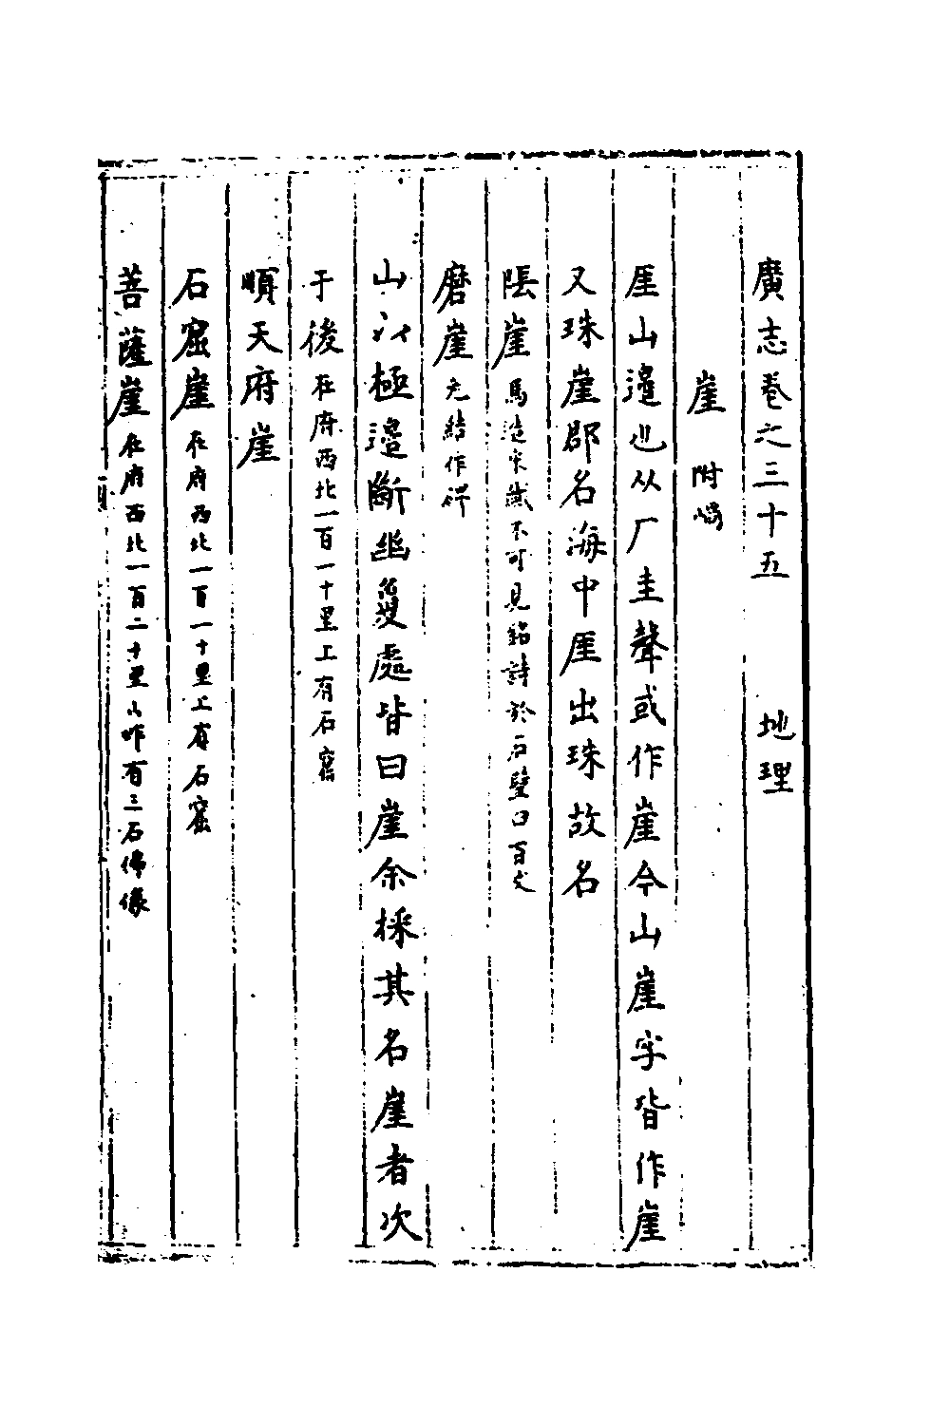 廣志卷之三十五　地理
崖 附
厓山邉也从厂圭聲或作崖今山崖字皆作崖
又珠崖郡名海中厓出珠故名
崖 馬 不可見銘詩於石壁口百丈
磨崖 元結作
山 極邉斷 處皆曰崖余採其名崖者次
于後 在府西北一百一十里上有石窟
順天府崖
石窟崖 在府西北一百一十里上有石窟
菩薩崖 在府西北一百二十里山 有三石佛像